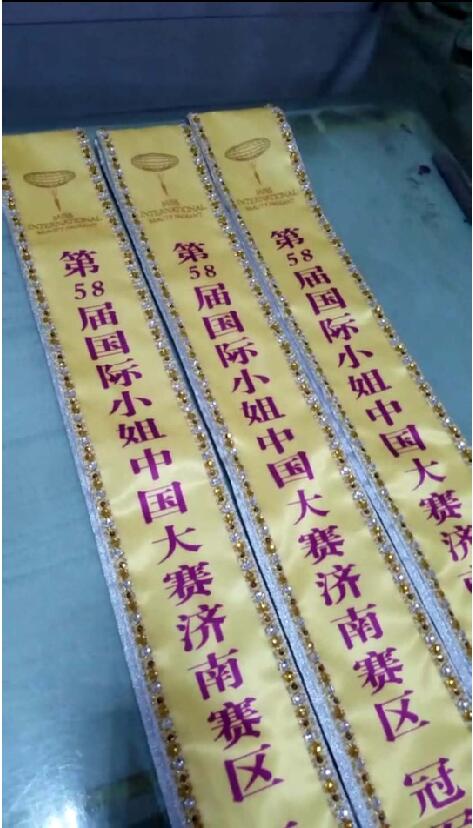 MISS
INTERNATIONAL
BEAUTY PAGEANT
第58届国际小姐中国大赛济南赛区
MISS
INTERNATIONAL
BEAUTY PAGEANT
第58届国际小姐中国大赛济南赛区 冠
MISS
INTERNATIONAL
BEAUTY PAGEANT
第58届国际小姐中国大赛济南